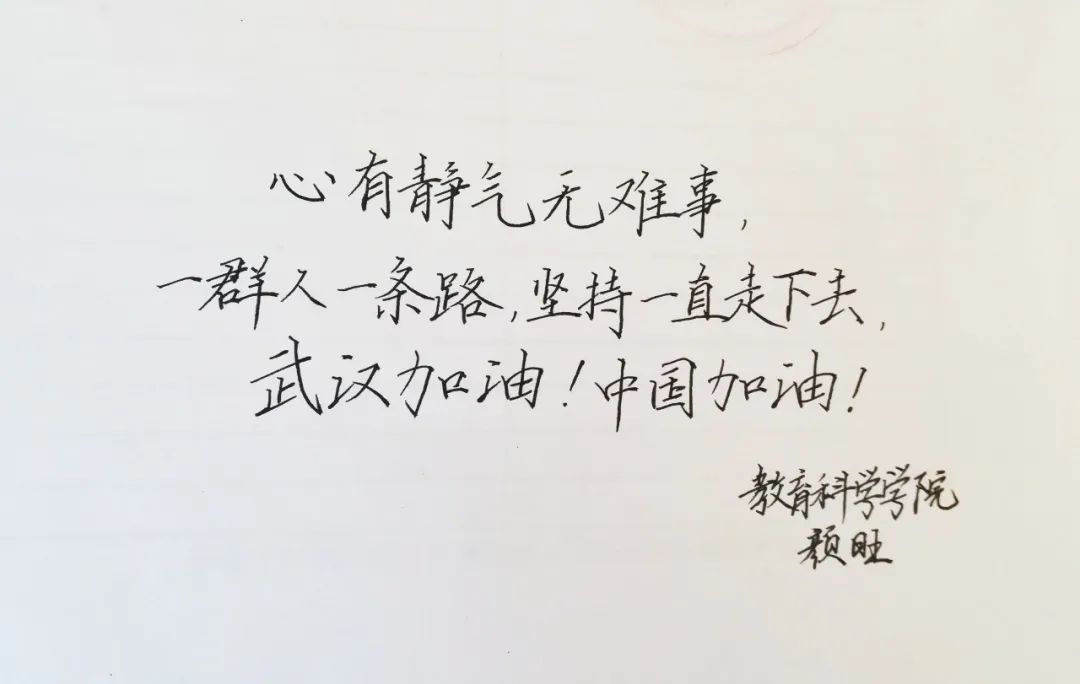 心有静气无难事,
一群人一条路,坚持一直走下去,
武汉加油!中国加油!
教育科学学院
颜旺